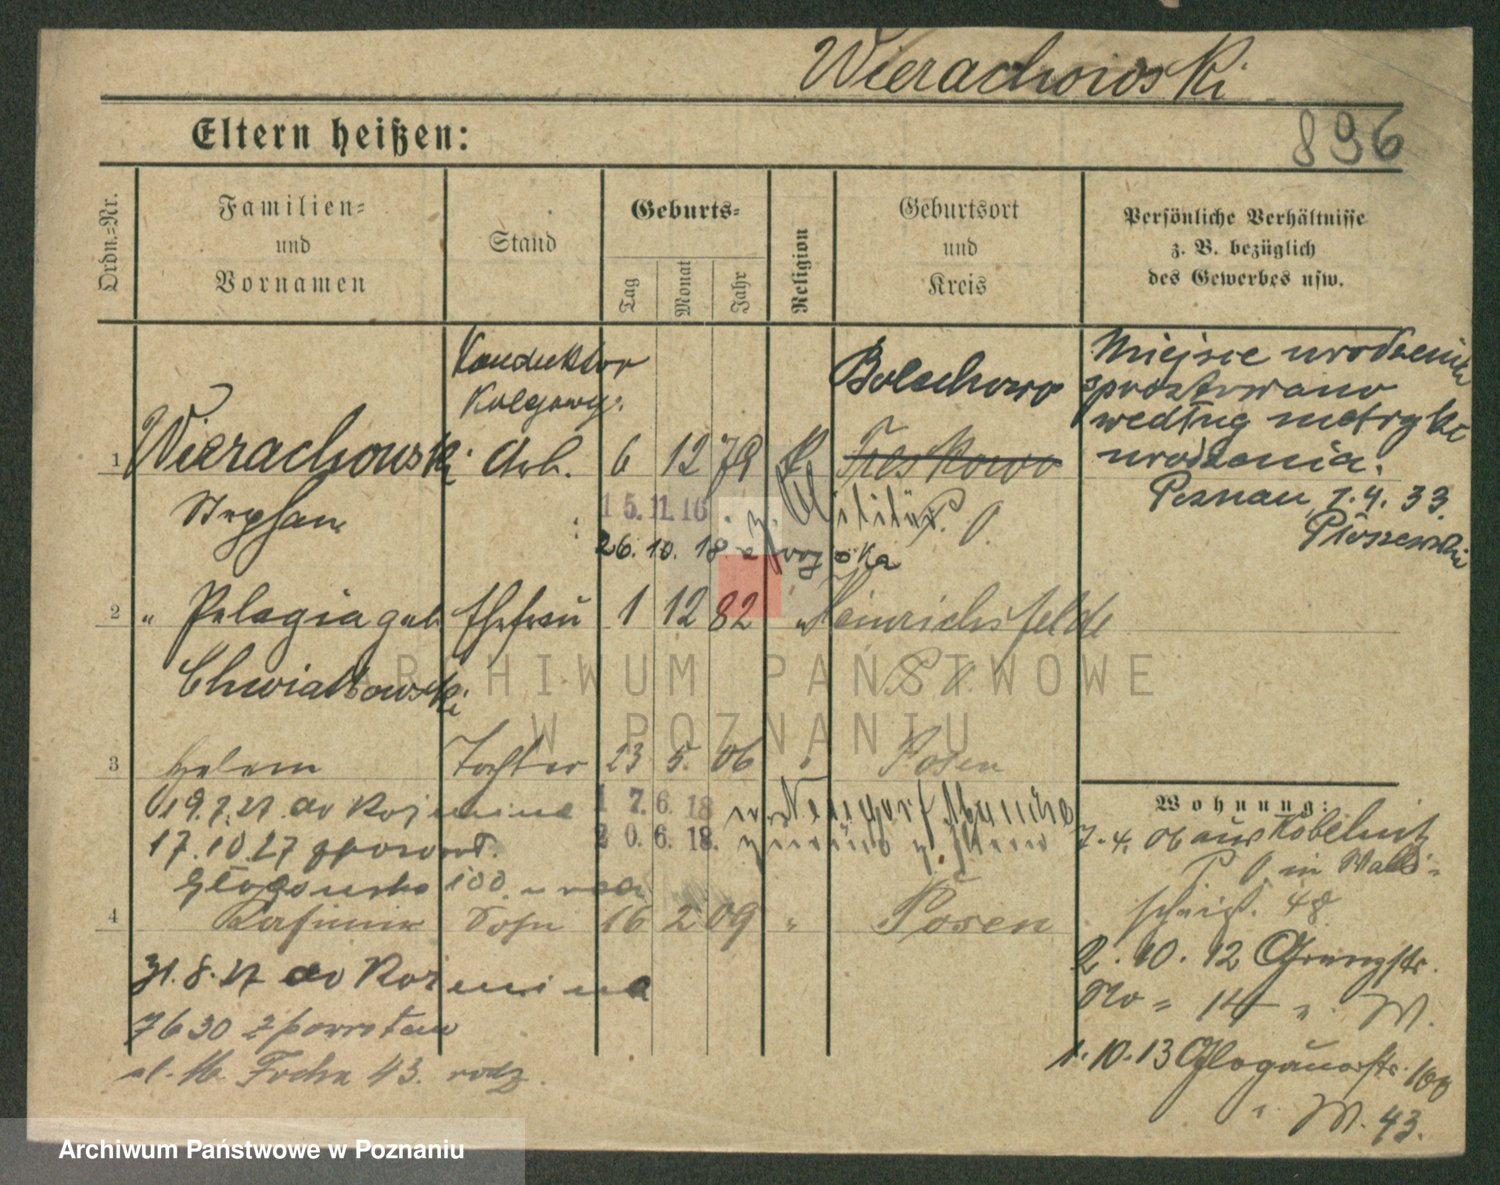 Wierachowski
896
Eltern heißen:
Ordn.=Nr.
Familien=
und
Vornamen
Stand
Geburts=
Tag
Monat
Jahr
Religion
Geburtsort
und
Kreis
Persönliche Verhältnisse
z. B. bezüglich
des Gewerbes usw.
Konduktor
Kolejowy.
1 Wierachowski Arb. 6 12 79 K Treskowo
Bolechowo
Stephan
P. O.
15.11.16 z. Militär
26.10.18. z wojska
Miejsce urodzenia
sprostowano
według metryki
urodzenia.
Poznań, 7.4.33.
2 " Pelagia geb. Ehefrau 1 12 82 " Heinrichsfelde
Chwiałkowski
P. O.
3 Helene Tochter 23 5. 06 " Posen
19.7.27 do Koźmina 17.6.18
17.10.27 z powrot. 20.6.18.
Głogowska 100
4 Kasimir Sohn 16 2 09 " Posen
31.8.27 do Koźmina
7 6 30 z powrotem
ul. M. Focha 43. rodz.
Wohnung:
7.4.06 aus Kobelnitz
P. O. in Walli=
scheistr. 48
2.10.12 Grenzstr.
No = 14 " W.
1.10.13 Glogauerstr. 100
" W. 43.
ARCHIWUM PAŃSTWOWE
W POZNANIU
Archiwum Państwowe w Poznaniu